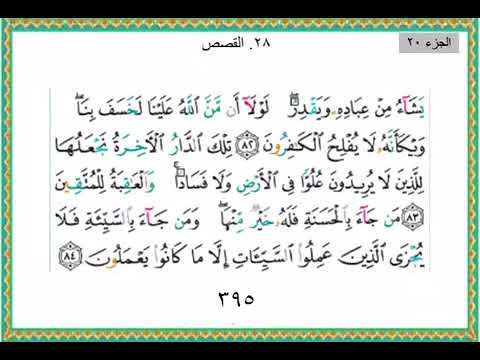 ٢٨. القصص
الجزء ٢٠
يَشَآءُ مِنْ عِبَادِهِۦ وَيَقْدِرُ ۖ لَوْلَآ أَن مَّنَّ ٱللَّهُ عَلَيْنَا لَخَسَفَ بِنَا ۖ
وَيْكَأَنَّهُۥ لَا يُفْلِحُ ٱلْكَٰفِرُونَ ٨٢ تِلْكَ ٱلدَّارُ ٱلْءَاخِرَةُ نَجْعَلُهَا
لِلَّذِينَ لَا يُرِيدُونَ عُلُوًّا فِى ٱلْأَرْضِ وَلَا فَسَادًا ۚ وَٱلْعَٰقِبَةُ لِلْمُتَّقِينَ
٨٣ مَن جَآءَ بِٱلْحَسَنَةِ فَلَهُۥ خَيْرٌ مِّنْهَا ۖ وَمَن جَآءَ بِٱلسَّيِّئَةِ فَلَا
يُجْزَى ٱلَّذِينَ عَمِلُوا۟ ٱلسَّيِّـَٔاتِ إِلَّا مَا كَانُوا۟ يَعْمَلُونَ ٨٤
٣٩٥